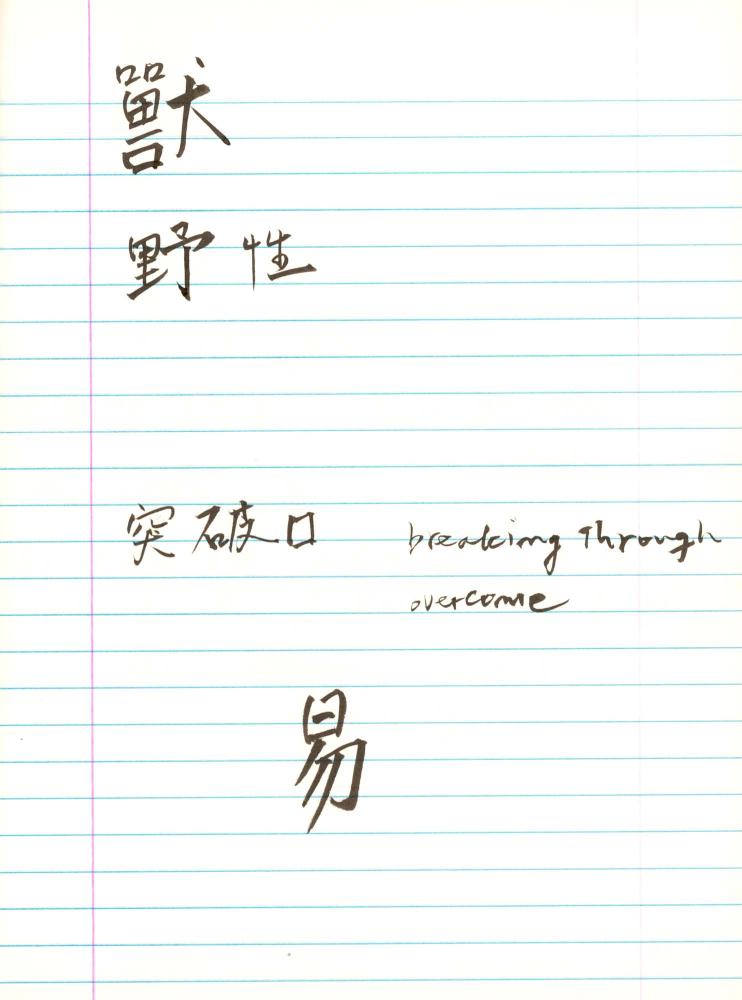 獸
野性
突破口 breaking through
overcome
易